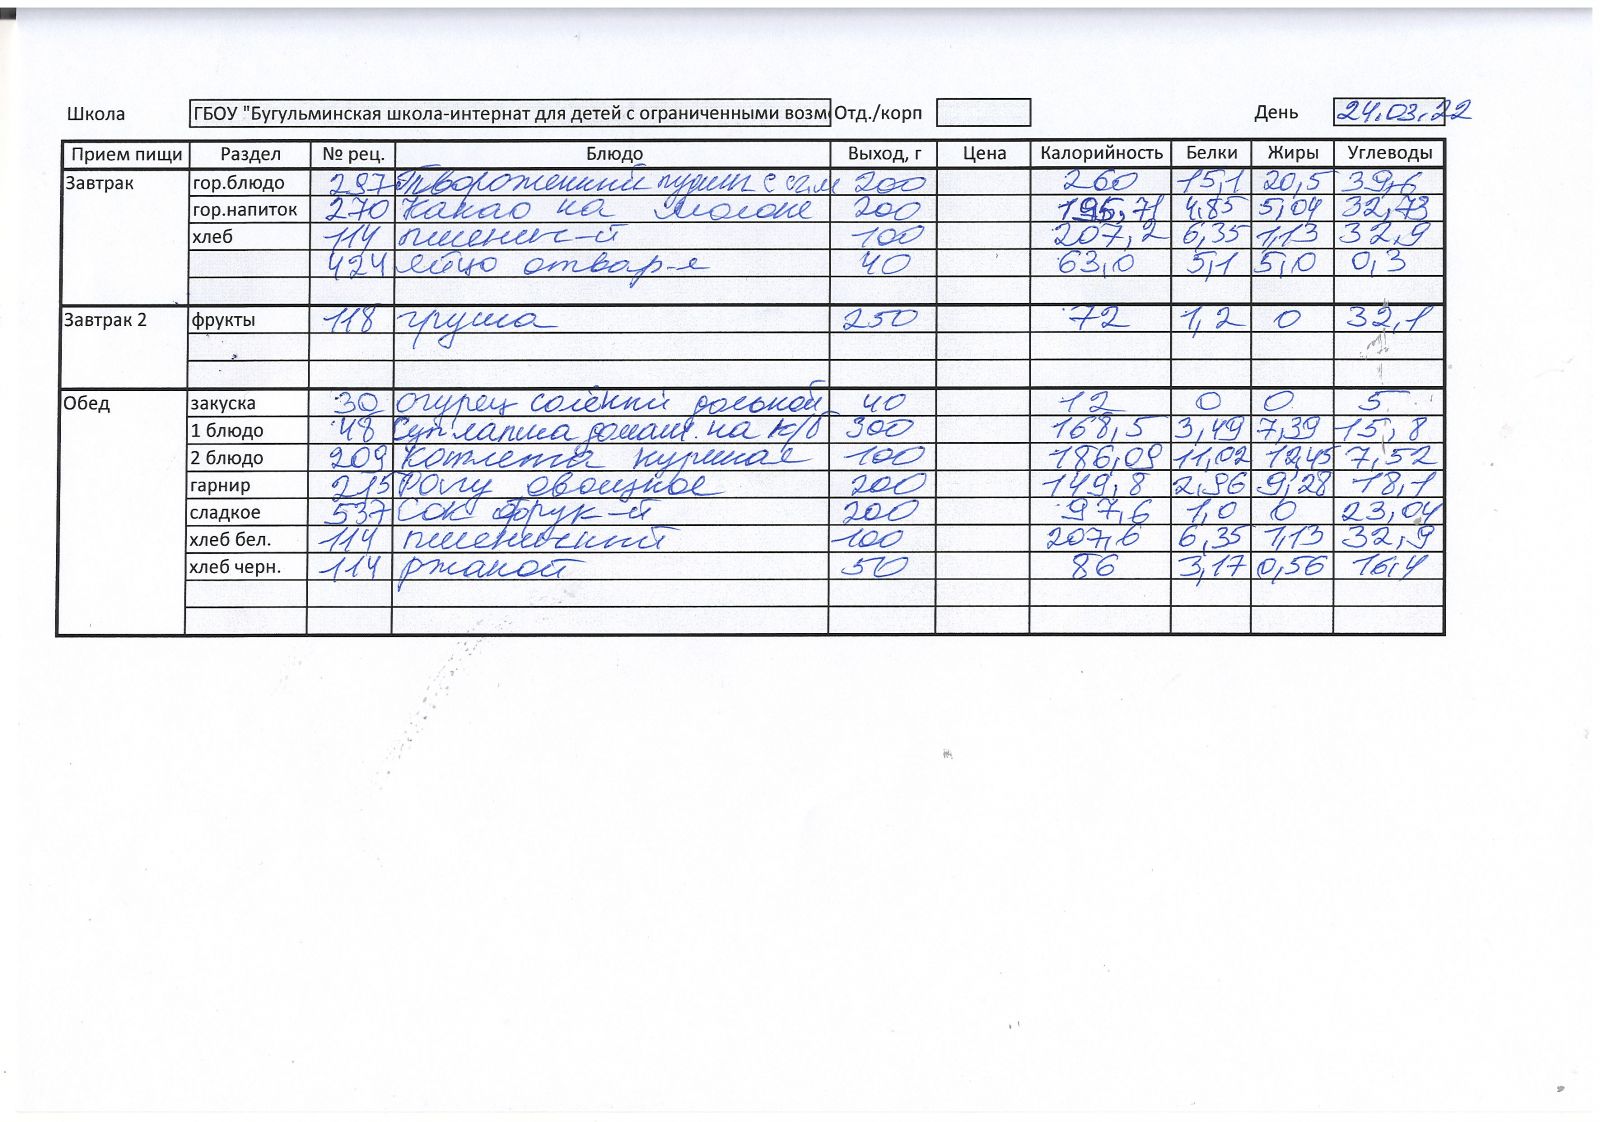 Школа ГБОУ "Бугульминская школа-интернат для детей с ограниченными возм Отд./корп День 24.03.22
Прием пищи Раздел № рец. Блюдо Выход, г Цена Калорийность Белки Жиры Углеводы
Завтрак гор.блюдо 297 Творожений пудинг с сг.м 200 260 15,1 20,5 39,6
гор.напиток 270 Какао на молоке 200 195,71 4,85 5,04 32,73
хлеб 114 пшенич-й 100 207,2 6,35 1,13 32,9
424 яйцо отвар-е 40 63,0 5,1 5,0 0,3
Завтрак 2 фрукты 118 груша 250 72 1,2 0 32,1
Обед закуска 30 огурец солёний долькой 40 12 0 0 5
1 блюдо 48 Суп лапша домаш. на к/б 300 168,5 3,49 7,39 15,8
2 блюдо 209 Котлета куриная 100 186,09 11,02 12,45 7,52
гарнир 215 Рагу овощное 200 149,8 2,96 9,28 18,1
сладкое 537 Сок фрук-й 200 97,6 1,0 0 23,04
хлеб бел. 114 пшеничний 100 207,6 6,35 1,13 32,9
хлеб черн. 114 ржаной 50 86 3,17 0,56 16,4